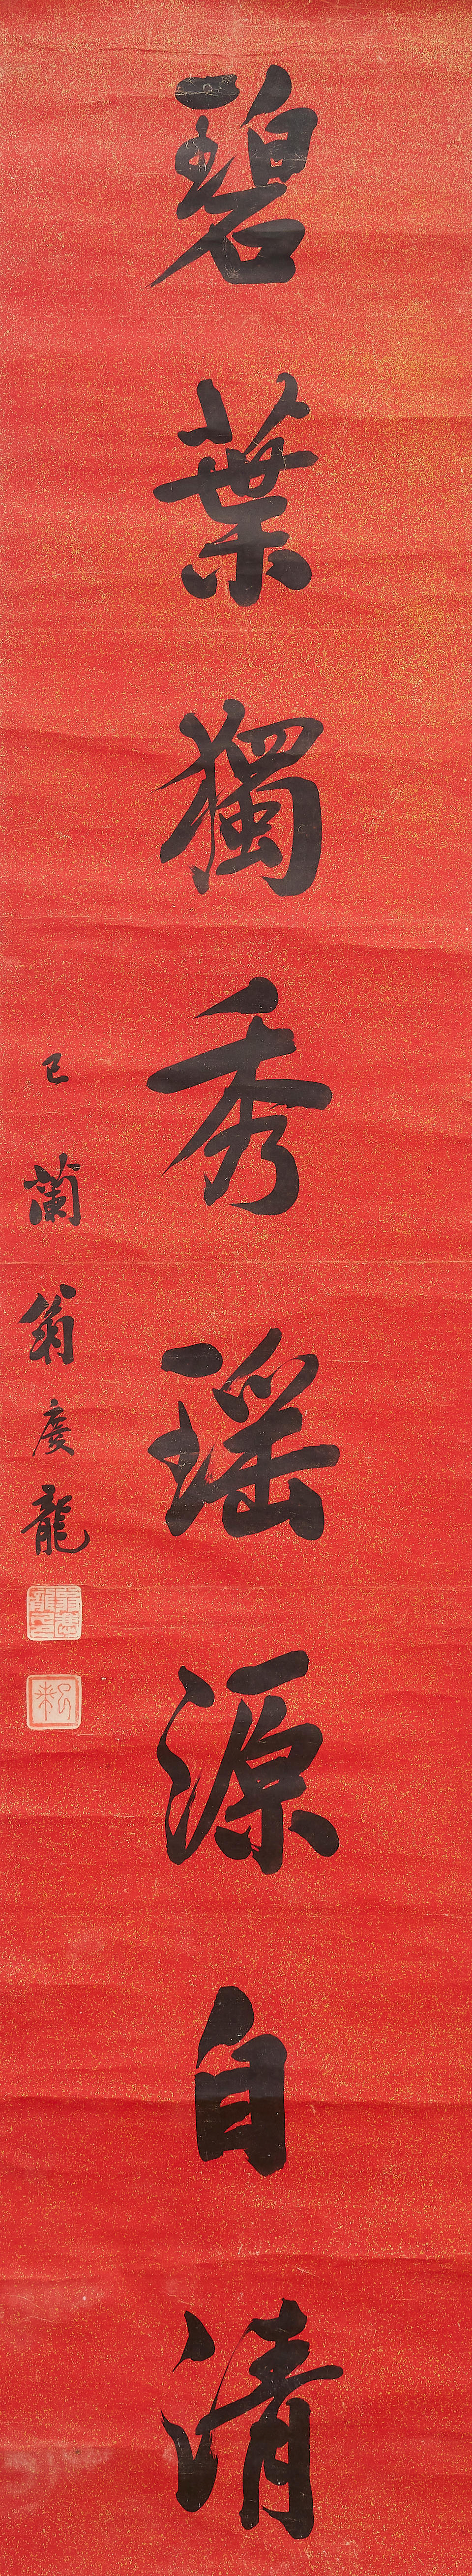 碧葉獨秀瑤源自清
己蘭翁慶龍